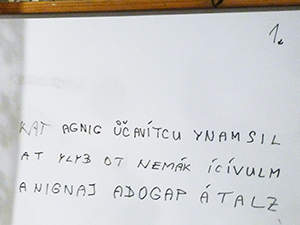 1.
KAT AGNIG ŮČAVÍTCU YNAMSIL
AT YLYB OT NEMÁK ÍCÍVULM
A NIGNAJ ADOGAP Á TALZ